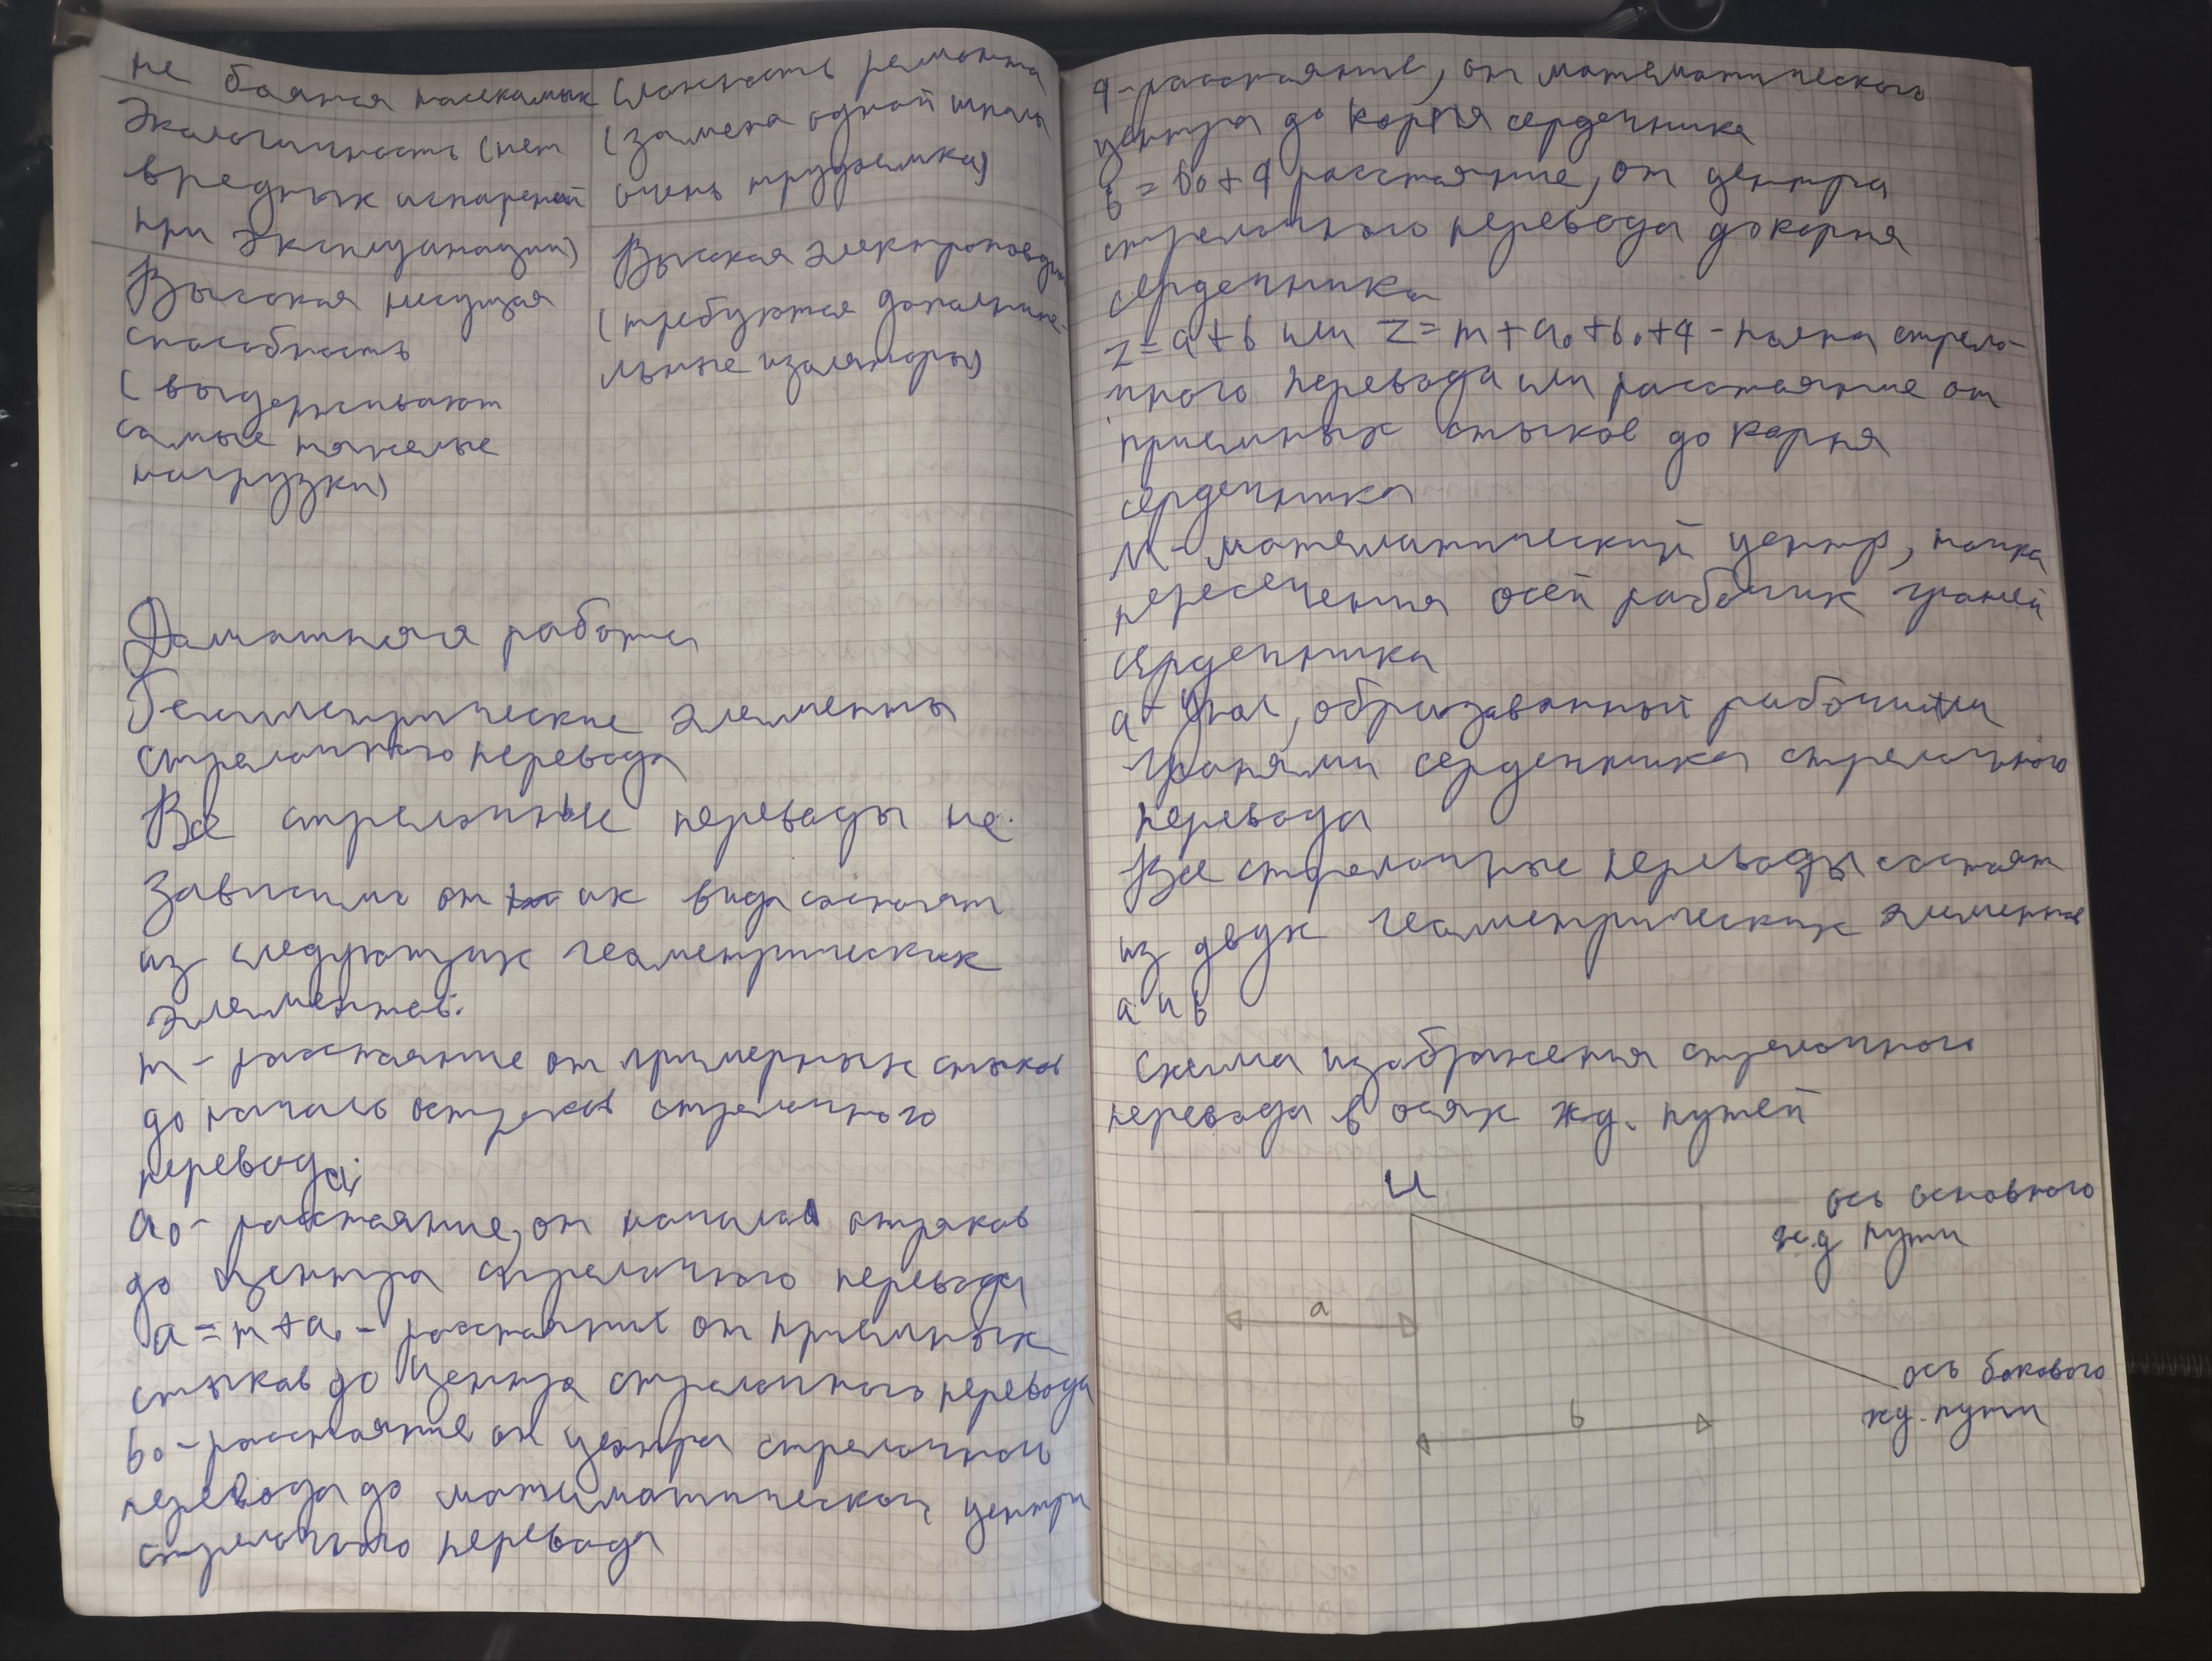 не боятся насекомых
Экологичность (нет
вредных испарений
при эксплуатации)
Высокая несущая
способность
(выдерживают
самые тяжелые
нагрузки)
Сложность ремонта
(замена одной шпалы
очень трудоемка)
Высокая электропровдн
(требуются дополните-
льные изоляторы)
Домашняя работа
Геометрические элементы
стрелочного перевода
Все стрелочные переводы не
зависимо от их вида состоят
из следующих геометрических
элементов:
m - расстояние от примерных стыков
до начала остряков стрелочного
перевода;
a₀ - расстояние, от начала отряков
до центра стрелочного перевода
a = m + a₀ - расстояние от приемных
стыков до центра стрелочного перевода
b₀ - расстояние от центра стрелочного
перевода до математического центра
стрелочного перевода
q - расстояние, от математического
центра до корня сердечника
b = b₀ + q расстояние, от центра
стрелочного перевода до корня
сердечника
z = a + b или z = m + a₀ + b₀ + q - полна стрело-
чного перевода или расстояние от
приемных стыков до корня
сердечника
М - математический центр, точка
пересечения осей рабочих граней
сердечника
a - Угол, образованный рабочими
гранями сердечника стрелочного
перевода
Все стрелочные переводы состоят
из двух геометрических элементов
a и b
Схема изображения стрелочного
перевода в осях жд. путей
ц
ось основного
ж.д пути
a
ось бокового
жд. пути
b